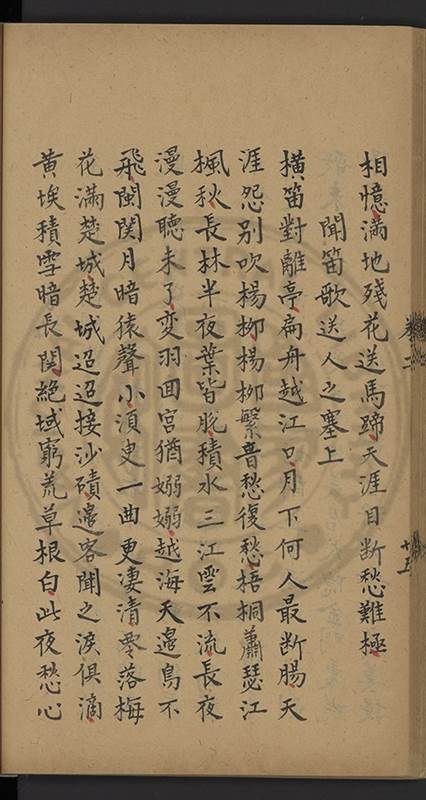 相憶滿地殘花送馬蹄天涯目断愁難極
聞笛歌送人之塞上
橫笛對離亭扁舟越江口月下何人最断腸天
涯怨别吹楊柳楊柳繁音愁復愁梧桐蕭瑟江
楓秋長林半夜葉皆脫積水三江雲不流長夜
漫漫聽未了変羽囬宮猶嫋嫋越海天邉鳥不
飛閩関月暗猿聲小湏臾一曲更凄清零落梅
花滿楚城楚城迢迢接沙磧邉客聞之淚俱滴
黄埃積雪暗長関絶域窮荒草根白此夜愁心
卷二
十五